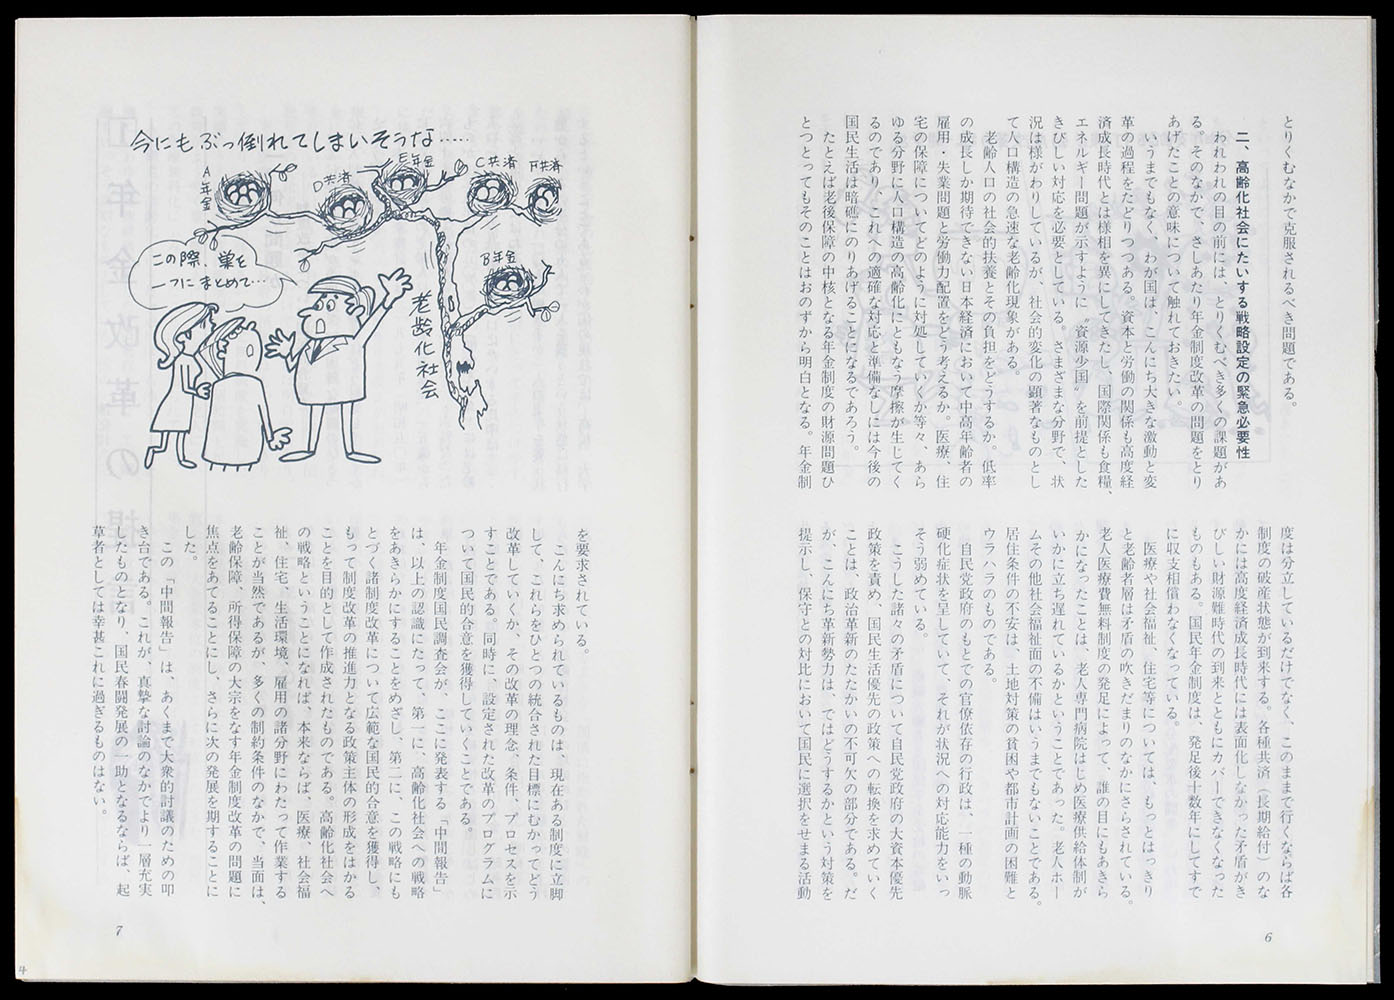 とりくむなかで克服されるべき問題である。
二、高齢化社会にたいする戦略設定の緊急必要性
われわれの目の前には、とりくむべき多くの課題があ
る。そのなかで、さしあたり年金制度改革の問題をとり
あげたことの意味について触れておきたい。
いうまでもなく、わが国は、こんにち大きな激動と変
革の過程をたどりつつある。資本と労働の関係も高度経
済成長時代とは様相を異にしてきたし、国際関係も食糧、
エネルギー問題が示すように〝資源少国〟を前提とした
きびしい対応を必要としている。さまざまな分野で、状
況は様がわりしているが、社会的変化の顕著なものとし
て人口構造の急速な老齢化現象がある。
老齢人口の社会的扶養とその負担をどうするか。低率
の成長しか期待できない日本経済において中高年齢者の
雇用・失業問題と労働力配置をどう考えるか。医療、住
宅の保障についてどのように対処していくか等々、あら
ゆる分野に人口構造の高齢化にともなう摩擦が生じてく
るのであり、これへの適確な対応と準備なしには今後の
国民生活は暗礁にのりあげることになるであろう。
たとえば老後保障の中核となる年金制度の財源問題ひ
とつとってもそのことはおのずから明白となる。年金制
度は分立しているだけでなく、このままで行くならば各
制度の破産状態が到来する。各種共済（長期給付）のな
かには高度経済成長時代には表面化しなかった矛盾がき
びしい財源難時代の到来とともにカバーできなくなった
ものもある。国民年金制度は、発足後十数年にしてすで
に収支相償わなくなっている。
医療や社会福祉、住宅等については、もっとはっきり
と老齢者層は矛盾の吹きだまりのなかにさらされている。
老人医療費無料制度の発足によって、誰の目にもあきら
かになったことは、老人専門病院はじめ医療供給体制が
いかに立ち遅れているかということであった。老人ホー
ムその他社会福祉面の不備はいうまでもないことである。
居住条件の不安は、土地対策の貧困や都市計画の困難と
ウラハラのものである。
自民党政府のもとでの官僚依存の行政は、一種の動脈
硬化症状を呈していて、それが状況への対応能力をいっ
そう弱めている。
こうした諸々の矛盾について自民党政府の大資本優先
政策を責め、国民生活優先の政策への転換を求めていく
ことは、政治革新のたたかいの不可欠の部分である。だ
が、こんにち革新勢力は、ではどうするかという対策を
提示し、保守との対比において国民に選択をせまる活動
6
今にもぶっ倒れてしまいそうな……
A年金
D共済
E年金
C共済
F共済
B年金
老齢化社会
この際、巣を
一つにまとめて…
を要求されている。
こんにち求められているものは、現在ある制度に立脚
して、これらをひとつの統合された目標にむかってどう
改革していくか、その改革の理念、条件、プロセスを示
すことである。同時に、設定された改革のプログラムに
ついて国民的合意を獲得していくことである。
年金制度国民調査会が、ここに発表する「中間報告」
は、以上の認識にたって、第一に、高齢化社会への戦略
をあきらかにすることをめざし、第二に、この戦略にも
とづく諸制度改革について広範な国民的合意を獲得し、
もって制度改革の推進力となる政策主体の形成をはかる
ことを目的として作成されたものである。高齢化社会へ
の戦略ということになれば、本来ならば、医療、社会福
祉、住宅、生活環境、雇用の諸分野にわたって作業する
ことが当然であるが、多くの制約条件のなかで、当面は、
老齢保障、所得保障の大宗をなす年金制度改革の問題に
焦点をあてることにし、さらに次の発展を期することに
した。
この「中間報告」は、あくまで大衆的討議のための叩
き台である。これが、真摯な討論のなかでより一層充実
したものとなり、国民春闘発展の一助となるならば、起
草者としては幸甚これに過ぎるものはない。
7